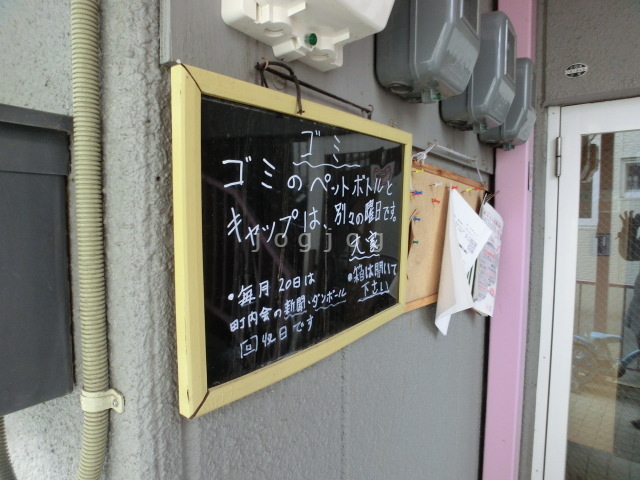 ゴミ
ゴミのペットボトルと
キャップは、別々の曜日です。
大家
・毎月20日は
町内会の新聞・ダンボール
回収日です
・箱は開いて
下さい
jogjog